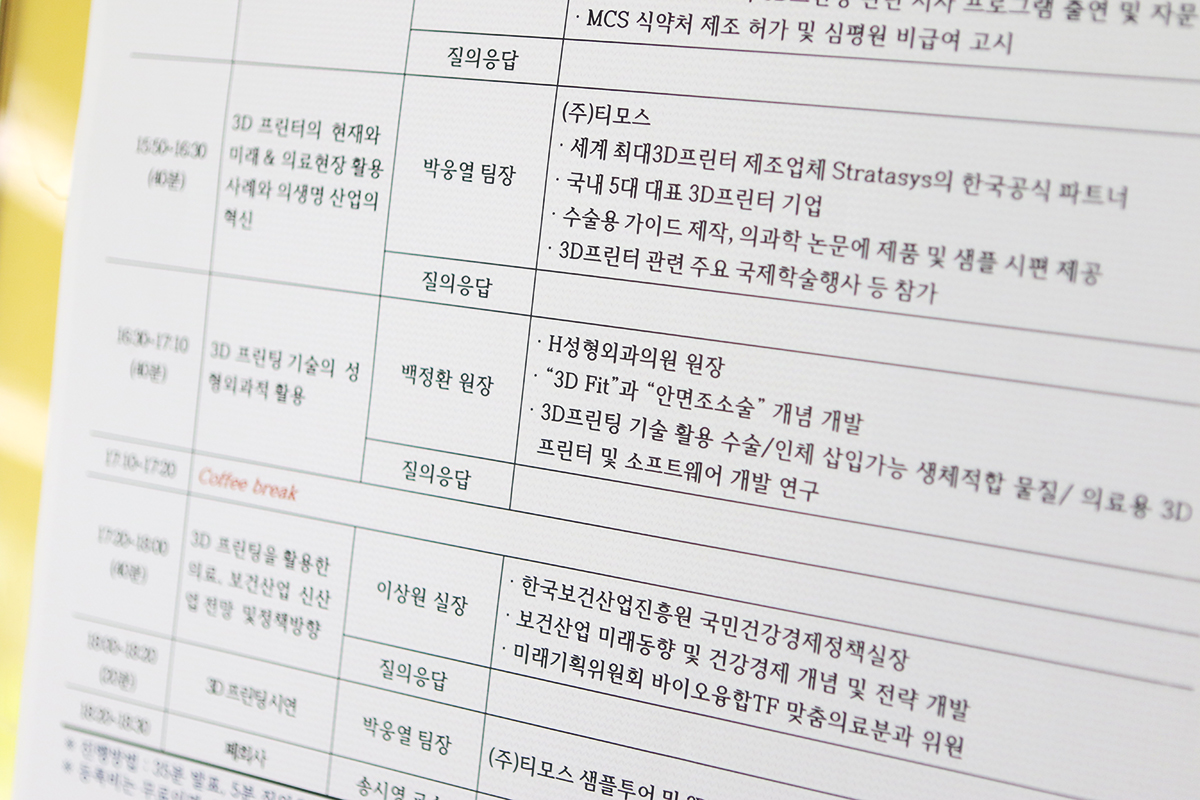 프로그램 출연 및 자문
· MCS 식약처 제조 허가 및 심평원 비급여 고시
질의응답
15:50~16:30
(40분)
3D 프린터의 현재와
미래 & 의료현장 활용
사례와 의생명 산업의
혁신
박웅열 팀장
(주)티모스
· 세계 최대3D프린터 제조업체 Stratasys의 한국공식 파트너
· 국내 5대 대표 3D프린터 기업
· 수술용 가이드 제작, 의과학 논문에 제품 및 샘플 시편 제공
· 3D프린터 관련 주요 국제학술행사 등 참가
질의응답
16:30~17:10
(40분)
3D 프린팅 기술의 성
형외과적 활용
백정환 원장
· H성형외과의원 원장
· “3D Fit”과 “안면조소술” 개념 개발
· 3D프린팅 기술 활용 수술/인체 삽입가능 생체적합 물질/ 의료용 3D
프린터 및 소프트웨어 개발 연구
질의응답
17:10~17:20
Coffee break
17:20~18:00
(40분)
3D 프린팅을 활용한
의료. 보건산업 신산
업 전망 및정책방향
이상원 실장
· 한국보건산업진흥원 국민건강경제정책실장
· 보건산업 미래동향 및 건강경제 개념 및 전략 개발
· 미래기획위원회 바이오융합TF 맞춤의료분과 위원
질의응답
18:00~18:20
(20분)
3D 프린팅시연
박웅열 팀장
(주)티모스 샘플투어 및
18:20~18:30
폐회사
송시영
* 진행방법 : 35분 발표, 5분
* 등록비는